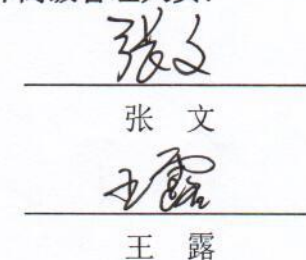 张文
张 文
王露
王 露